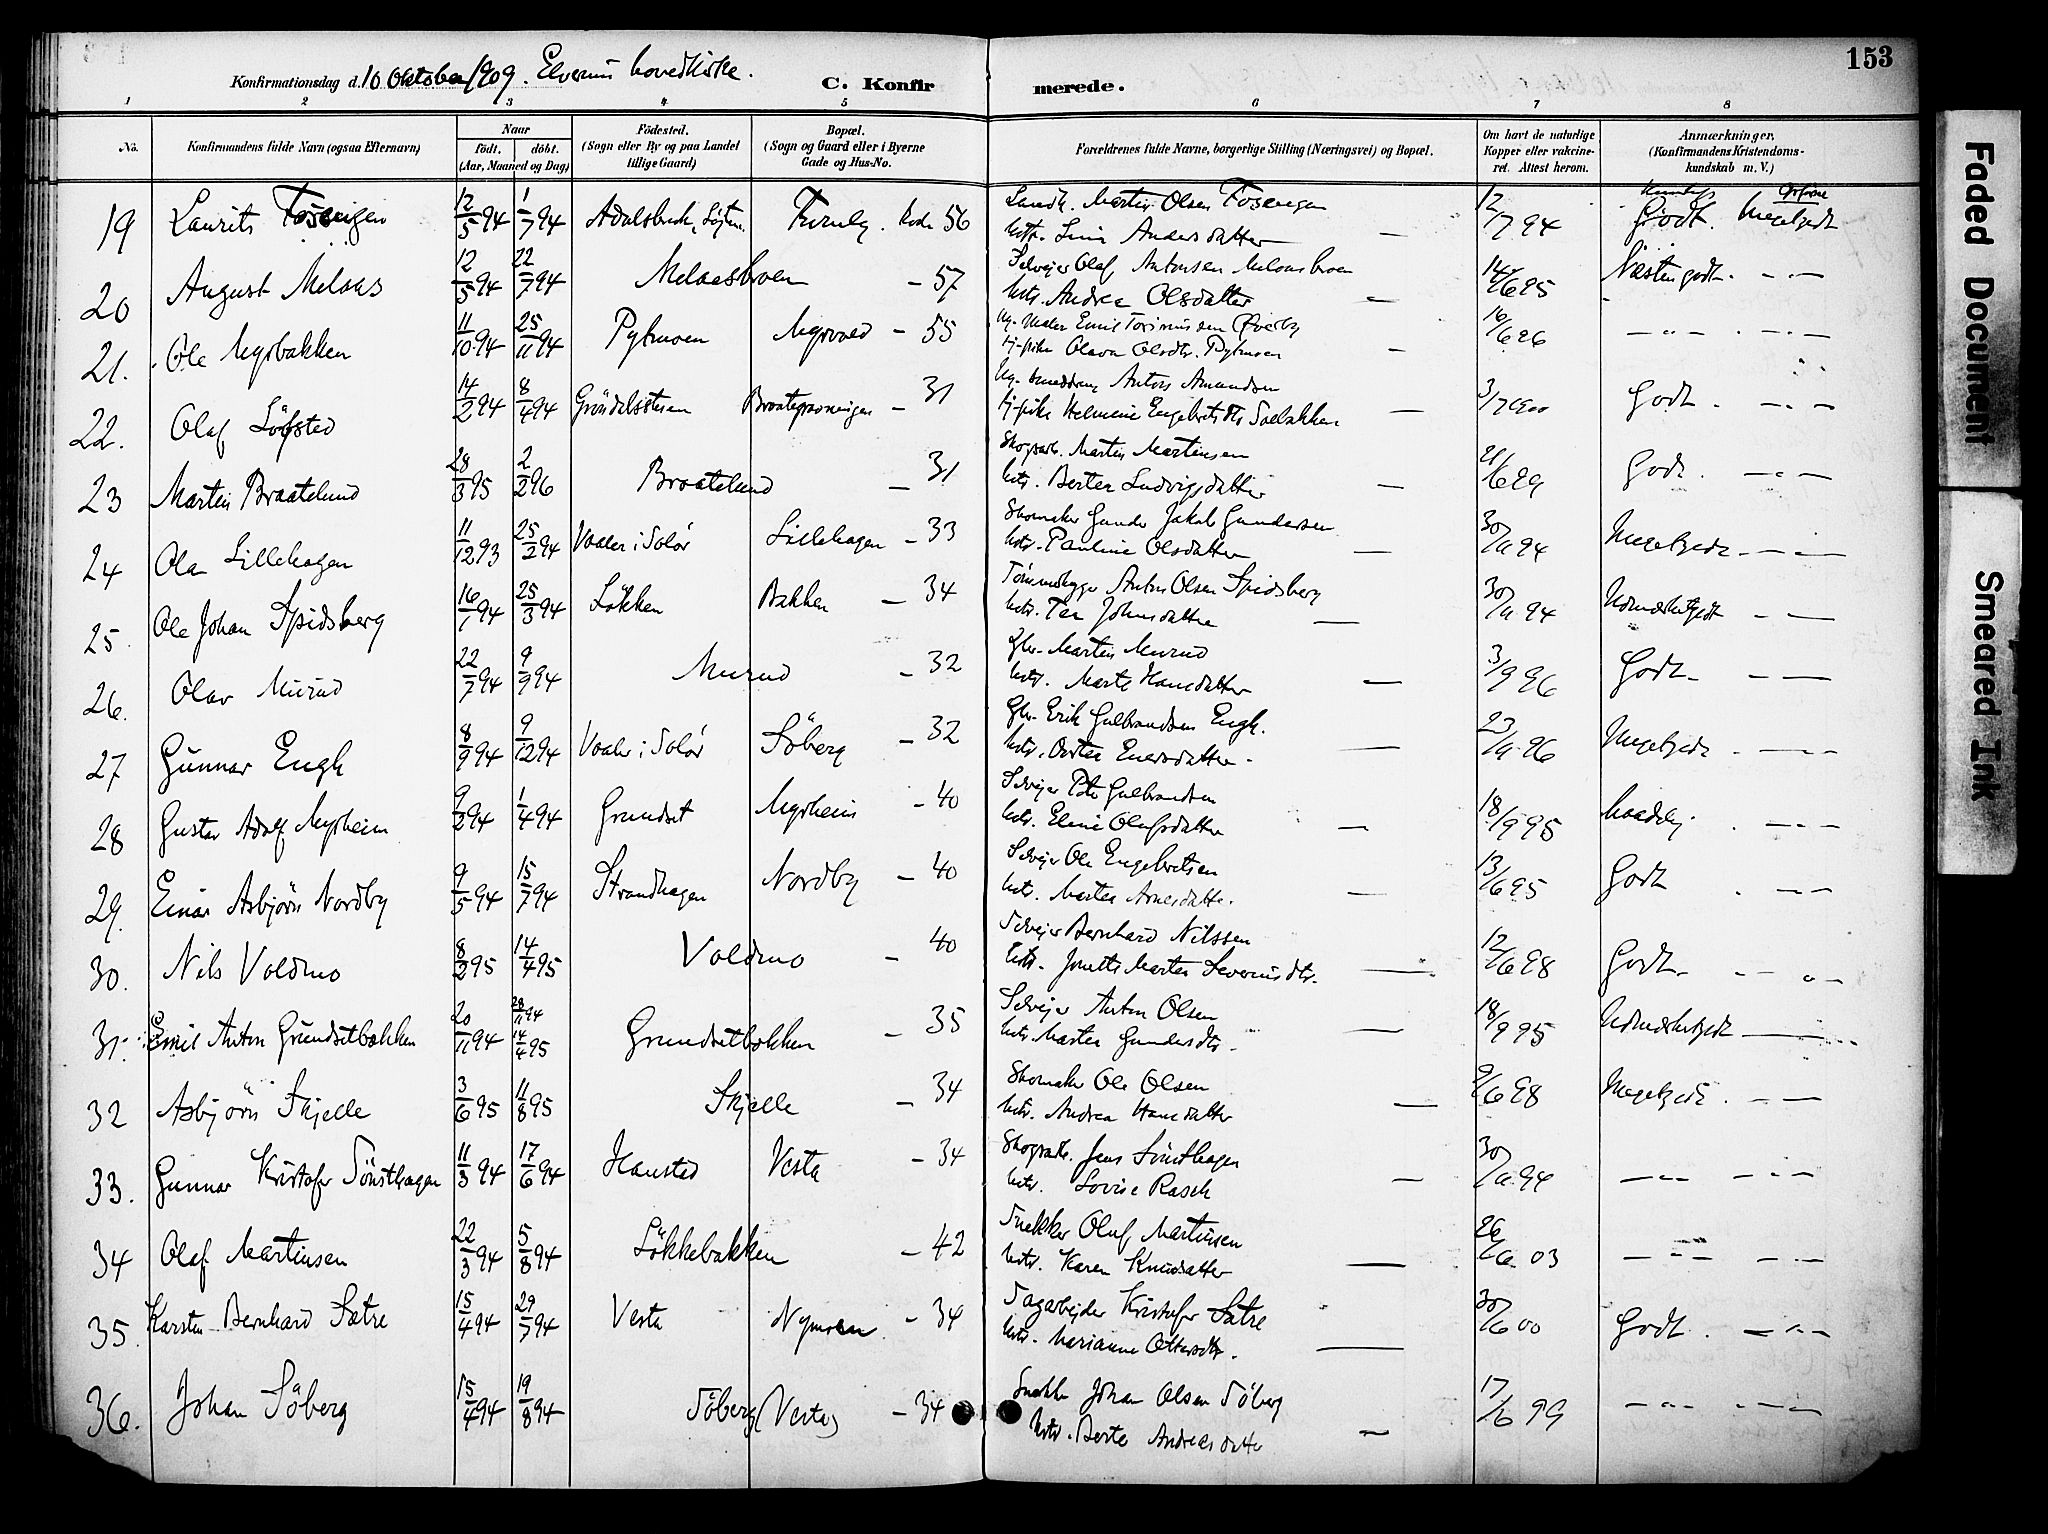 153
Konfirmationsdag d. 10 Oktober 1909. Elverum hovedkirke.
C. Konfirmerede.
1 2 3 4 5 6 7 8
No.
Konfirmandens fulde Navn (ogsaa Efternavn)
Naar
födt. döbt.
(Aar, Maaned og Dag)
Födested.
(Sogn eller By og paa Landet
tillige Gaard)
Bopæl.
(Sogn og Gaard eller i Byerne
Gade og Hus-No.
Forældrenes fulde Navne, borgerlige Stilling (Næringsvei) og Bopæl.
Om havt de naturlige
Kopper eller vakcine-
ret. Attest herom.
Anmærkninger.
(Konfirmandens Kristendoms-
kundskab m. V.)
19 Laurits Fosengen 12/5 94 1/7 94 Thornby. 56 Martin Olsen Fosengen
Andersdatter — 12/7 94 Godt. Megetgodt
20 August Melaas 12/5 94 22/7 94 Melaasbroen – 57 Selveier Olaf Antonsen Melaasbroen
hstr. Andrea Olsdatter — 14/6 95 Næsten godt. – „ –
21. Ole Myrbakken 11/10 94 25/11 94 Pytmoen Myrvold – 55 Øverby
Olava Olsdtr. Pytmoen – 16/6 96 – „ – . – „ –
22. Olaf Löfsted 14/2 94 8/4 94 – 31 Anton Amundsen
Helmine Engebretsdtr. — 3/7 900 Godt. – „ –
23 Martin Braatelund 28/3 95 2/2 96 Braatelund – 31 Skogsarb. Martin Martinsen
hstr. Bertea Ludvigsdatter – 21/6 99 Godt. – „ –
24 Ola Lillehagen 11/12 93 25/2 94 Vaaler i Solör Lillehagen – 33 Skomaker Gunder Jakob Gundersen
hstr. Pauline Olsdatter — 30/11 94 Megetgodt. – „ –
25. Ole Johan Spidsberg 16/1 94 25/3 94 Lökken Bakken – 34 Tömmerhugger Anton Olsen Spidsberg
hstr. Tea Johnsdatter — 30/11 94 Udmerketgodt – „ –
26. Olav Murud 22/7 94 9/9 94 Murud – 32 Gbr. Martin Murud
hstr. Marte Hansdatter — 3/9 96 Godt. – —
27 Gunnar Engh 8/9 94 9/12 94 Vaaler i Solör Söberg – 32 Gbr. Erik Gulbrandsen Engh.
hstr. — 23/11 96 Megetgodt. – „ –
28 Gustav Adolf Myrheim 9/2 94 1/4 94 Grundset Myrheim – 40 Selveier Peter Gulbrandsen
hstr. Eline Olufsdatter — 18/9 95 Maadelig. – „ –
29. Einar Asbjörn Nordby 9/5 94 15/7 94 Strandhagen Nordby – 40 Selveier Ole Engebretsen
hstr. Martea Arnesdatter. — 13/6 95 Godt. – „ –
30. Nils Voldmo 8/2 95 14/4 95 Voldmo – 40 Selveier Bernhard Nilssen
hstr. Jonette Martea Severinsdtr. — 12/6 98 Godt. – „ –
31. Emil Anton Grundsetbakken 20/11 94 28/11 94 14/4 95 Grundsetbakken – 35 Selveier Anton Olsen
hstr. Martea Gundersdtr. — 18/9 95 Udmerketgodt —
32 Asbjörn Skjelle 3/6 95 11/8 95 Skjelle – 34 Skomaker Ole Olsen
hstr. Andrea Hansdatter — 9/6 98 Megetgodt. – „ –
33. Gunnar Kristofer Sönsthagen 11/3 94 17/6 94 Hansted Vesta – 34 Skogsarb. Jens Sönsthagen
hstr. Lovise Rasch — 30/11 94 – „ – – „ –
34 Olaf Martinsen 22/3 94 5/8 94 Lökkebakken – 42 Snekker Oluf Martinsen
hstr. Karen Knudsdatter — 26/6 03 – „ – – „ –
35. Karsten Bernhard Sætre 15/4 94 29/7 94 Vesta Nymoen – 34 Sagarbejder Kristofer Sætre
hstr. Marianne Ottersdtr. — 30/6 00 Godt. – „ –
36. Johan Söberg 15/4 94 19/8 94 Söberg (Vesta) – 34 Snekker Johan Olsen Söberg
hstr. Berte Andreasdatter — 17/6 99 – „ – . – „ –
Faded Document
Smeared Ink